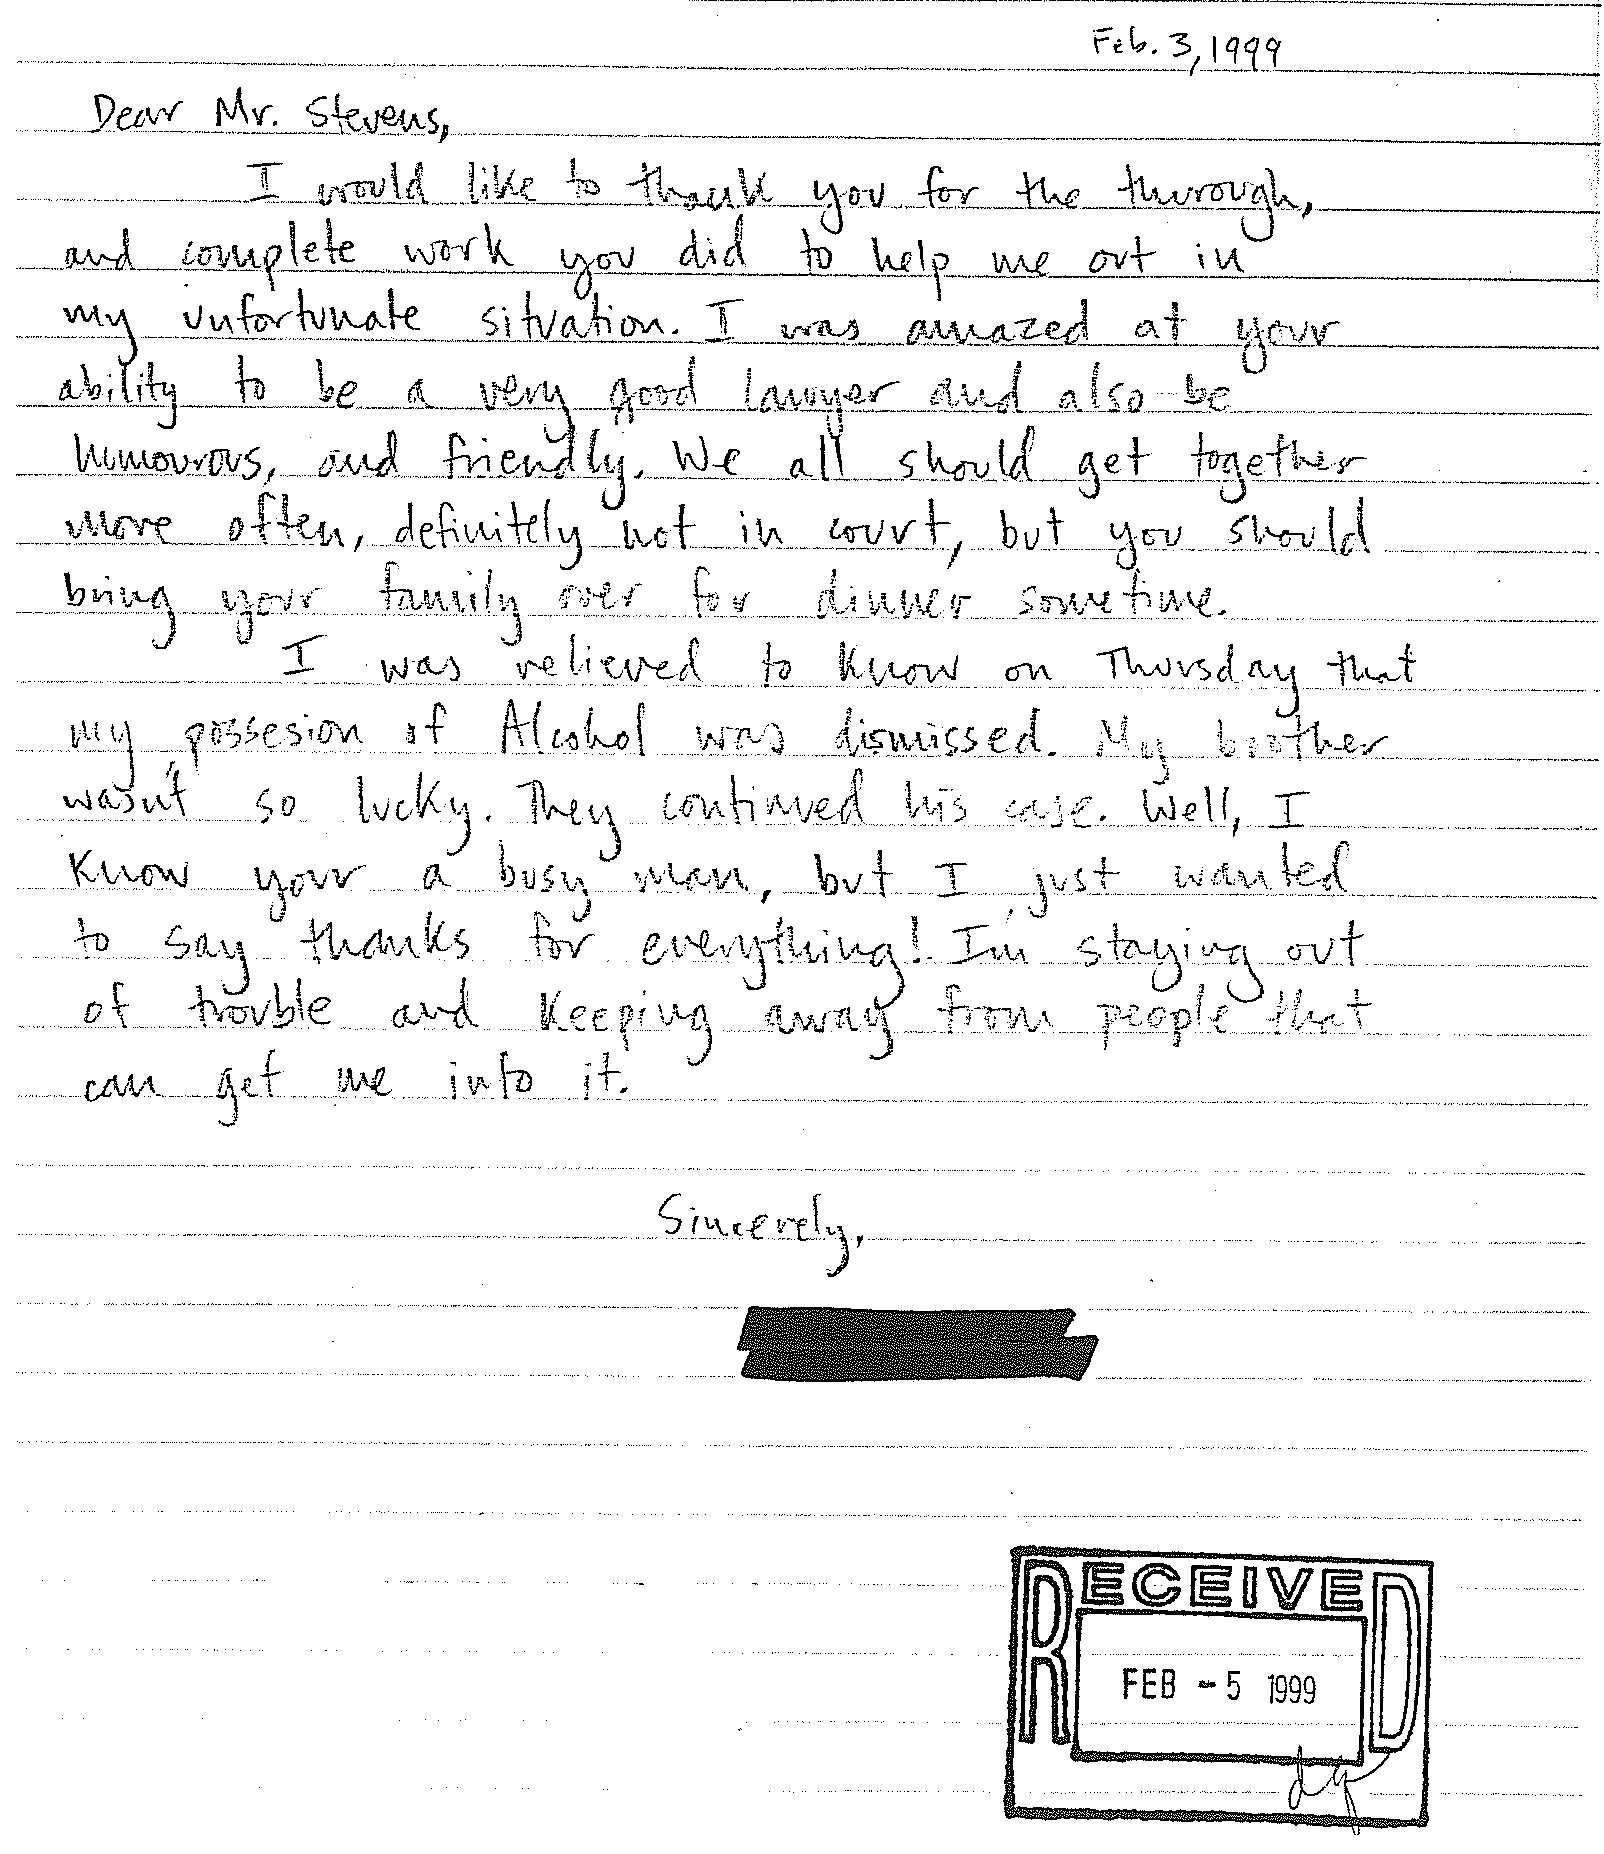 Feb. 3, 1999
Dear Mr. Stevens,
I would like to thank you for the thurough,
and complete work you did to help me out in
my unfortunate situation. I was amazed at your
ability to be a very good lawyer and also be
humourous, and friendly. We all should get together
more often, definitely not in court, but you should
bring your family over for dinner sometime.
I was relieved to know on Thursday that
my possesion of Alcohol was dismissed. My brother
wasn't so lucky. They continued his case. Well, I
know your a busy man, but I just wanted
to say thanks for everything! I'm staying out
of trouble and keeping away from people that
can get me into it.
Sincerely,
RECEIVED
FEB - 5 1999